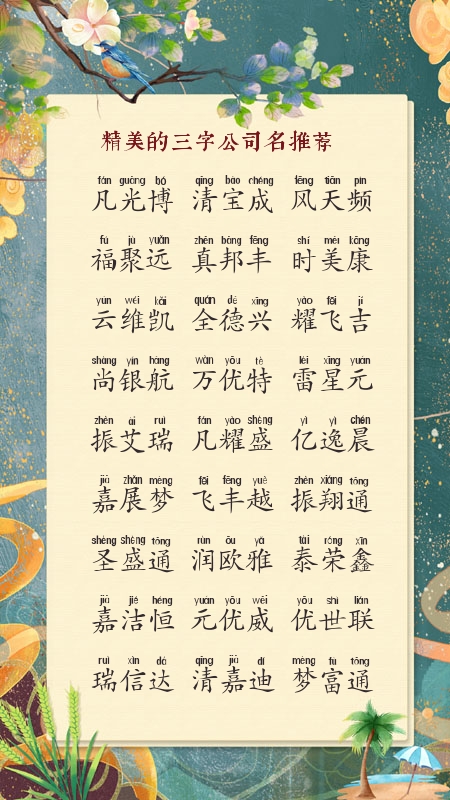 精美的三字公司名推荐
fán guāng bó qīng bǎo chéng fēng tiān pín
凡光博 清宝成 风天频
fú jù yuǎn zhēn bāng fēng shí měi kāng
福聚远 真邦丰 时美康
yún wéi kǎi quán dé xīng yào fēi jí
云维凯 全德兴 耀飞吉
shàng yín háng wàn yōu tè léi xīng yuán
尚银航 万优特 雷星元
zhèn ài ruì fán yào shèng yì yì chén
振艾瑞 凡耀盛 亿逸晨
jiā zhǎn mèng fēi fēng yuè zhèn xiáng tōng
嘉展梦 飞丰越 振翔通
shèng shèng tōng rùn ōu yǎ tài róng xīn
圣盛通 润欧雅 泰荣鑫
jiā jié héng yuán yōu wēi yōu shì lián
嘉洁恒 元优威 优世联
ruì xìn dá qīng jiā dí mèng fù tōng
瑞信达 清嘉迪 梦富通